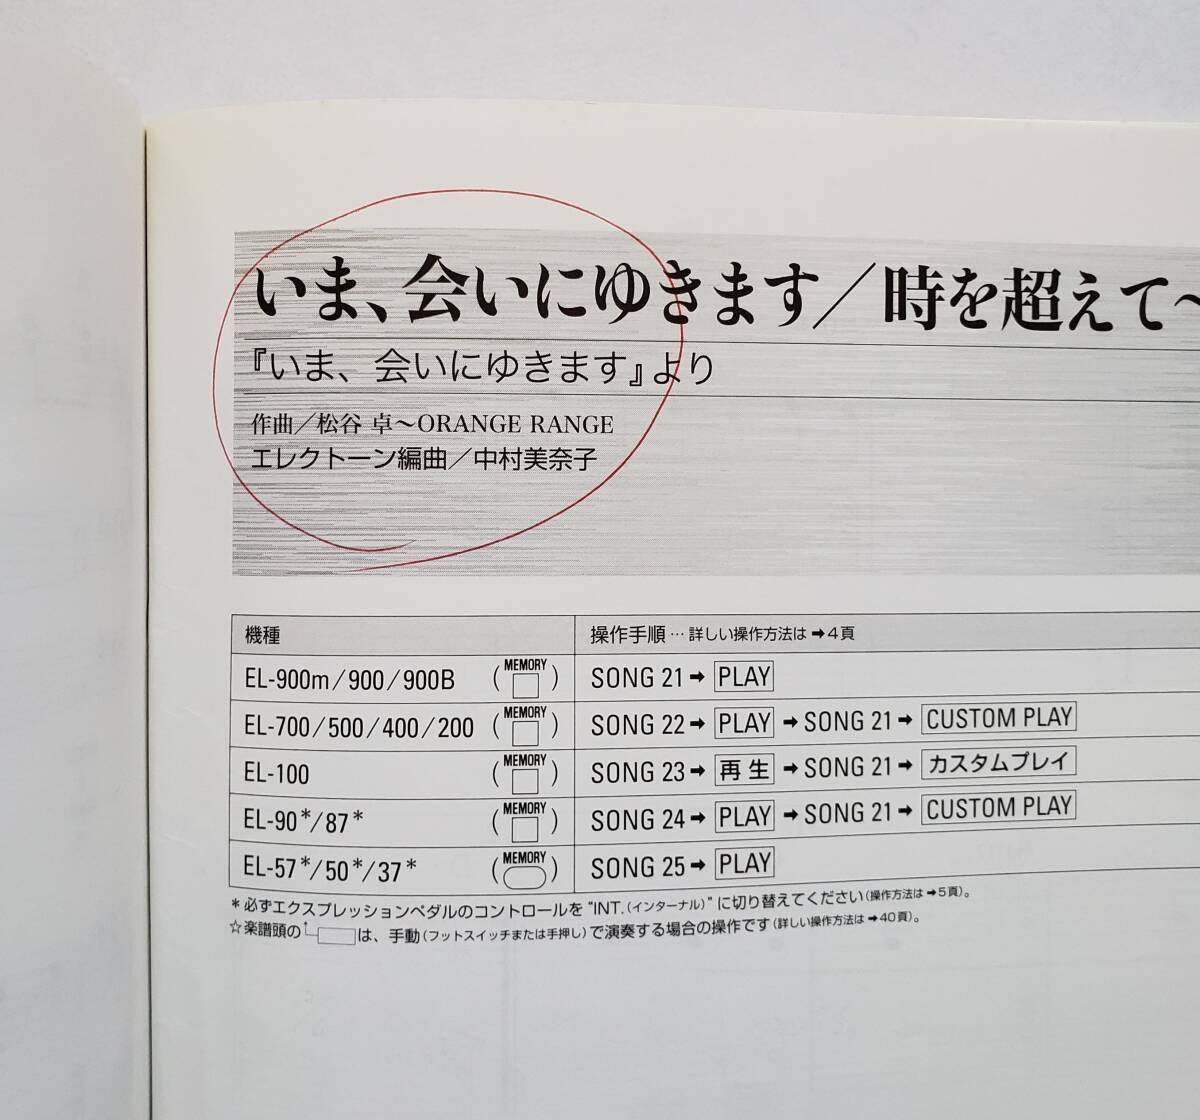 いま、会いにゆきます／時を超えて〜
『いま、会いにゆきます』より
作曲／松谷 卓〜ORANGE RANGE
エレクトーン編曲／中村美奈子
機種 操作手順…詳しい操作方法は➡4頁
EL-900m/900/900B (MEMORY) SONG 21➡ PLAY
EL-700/500/400/200 (MEMORY) SONG 22➡ PLAY ➡SONG 21➡ CUSTOM PLAY
EL-100 (MEMORY) SONG 23➡ 再生 ➡SONG 21➡ カスタムプレイ
EL-90*/87* (MEMORY) SONG 24➡ PLAY ➡SONG 21➡ CUSTOM PLAY
EL-57*/50*/37* (MEMORY) SONG 25➡ PLAY
*必ずエクスプレッションペダルのコントロールを“INT.(インターナル)”に切り替えてください(操作方法は➡5頁)。
☆楽譜頭の は、手動(フットスイッチまたは手押し)で演奏する場合の操作です(詳しい操作方法は➡40頁)。